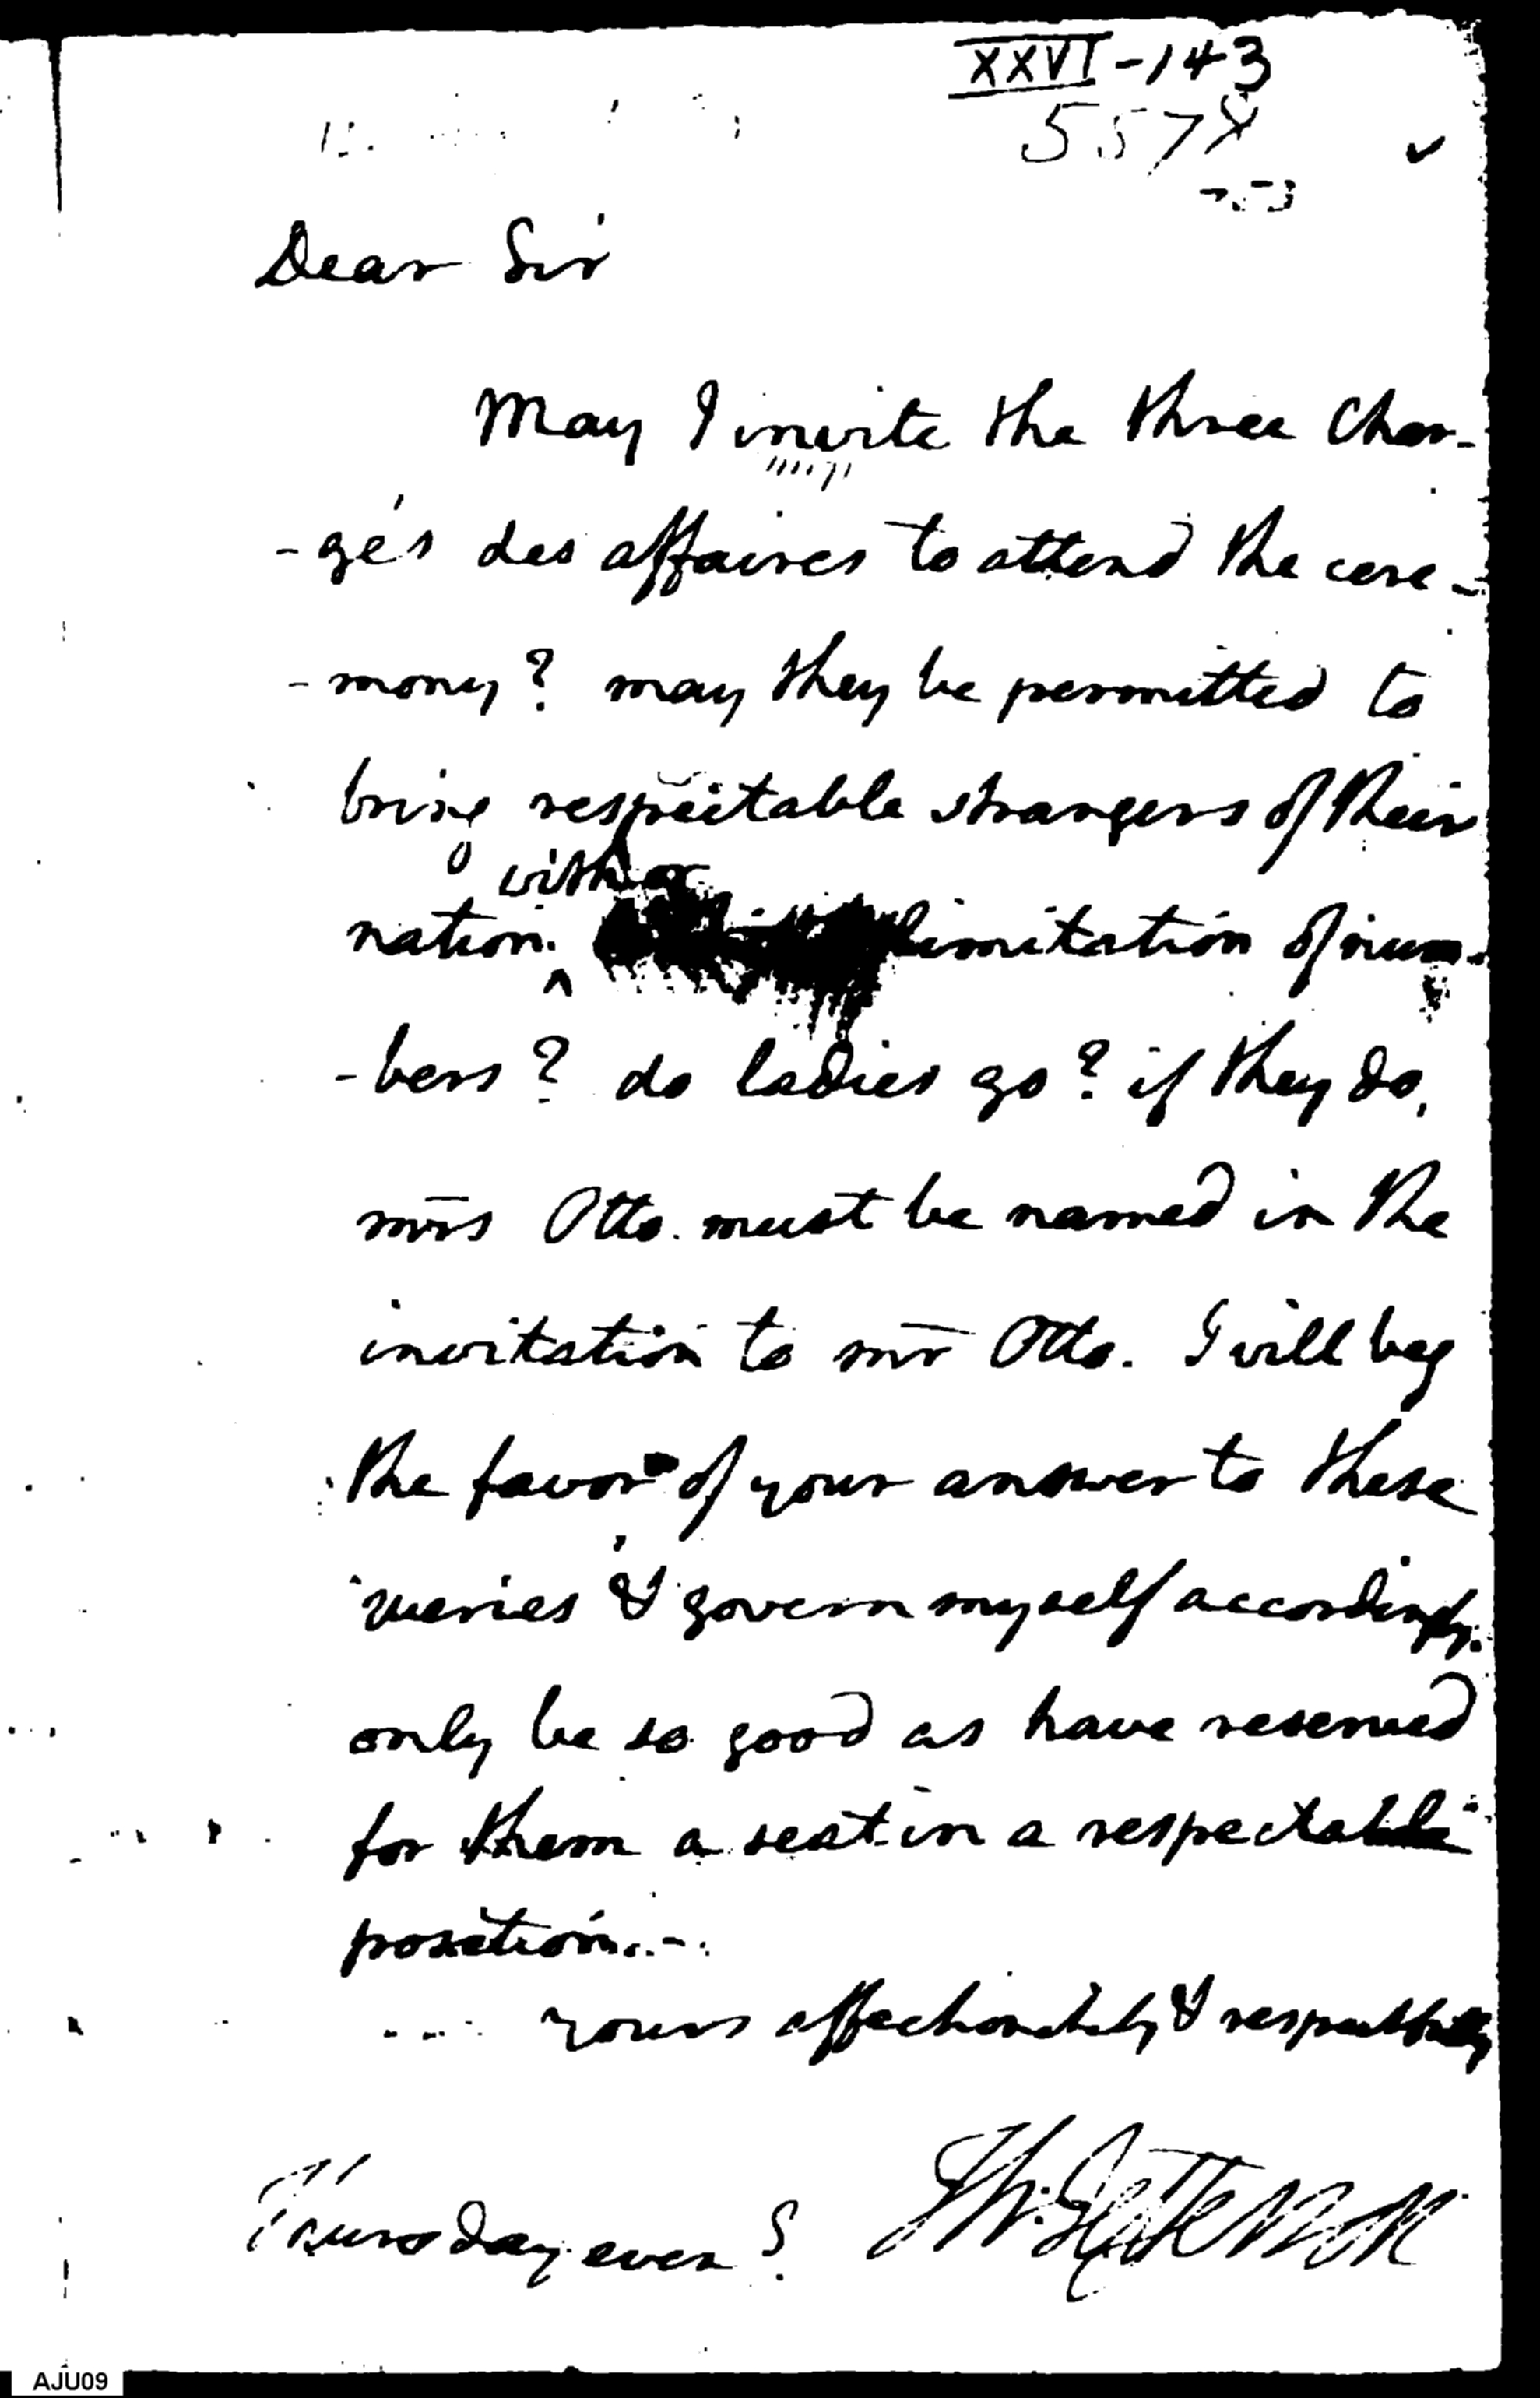 XXVI-143
557
Dear Sir
May I invite the three Char-
-gés des affaires to attend the cere-
-mony? may they be permitted to
bring respectable strangers of their
with a
nation limitation of num-
-bers? do ladies go? if they do,
mrs Otto. must be named in the
invitation to mr Otto. I will beg
the favor of your answer to these
queries & govern myself accordingly.
only be so good as have reserved
for them a seat in a respectable
position.
yours affectionately & respectfully
Thursday even
AJU09